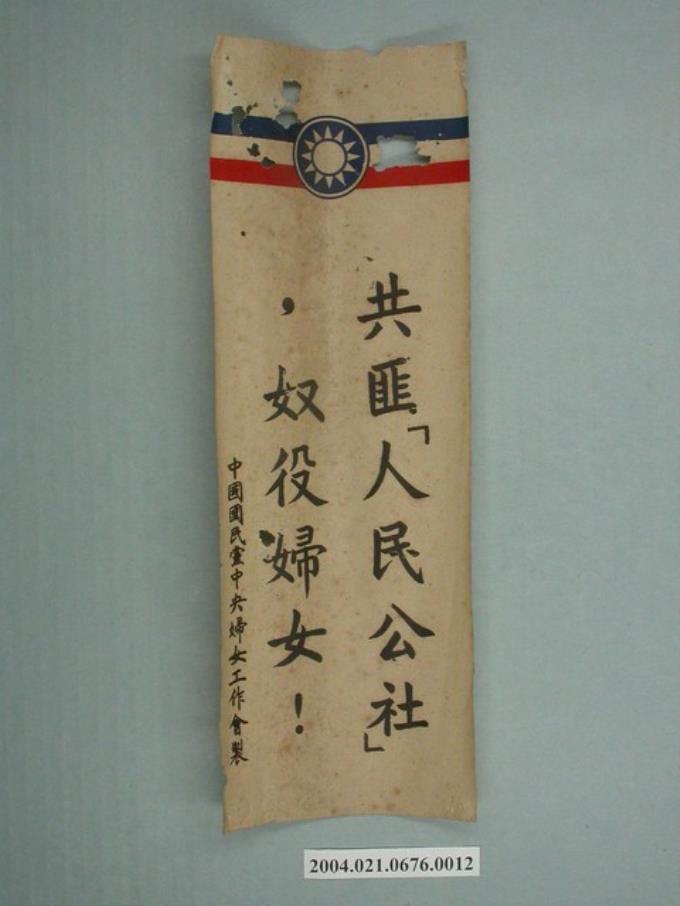 共匪「人民公社」
，奴役婦女！
中國國民黨中央婦女工作會製
2004.021.0676.0012